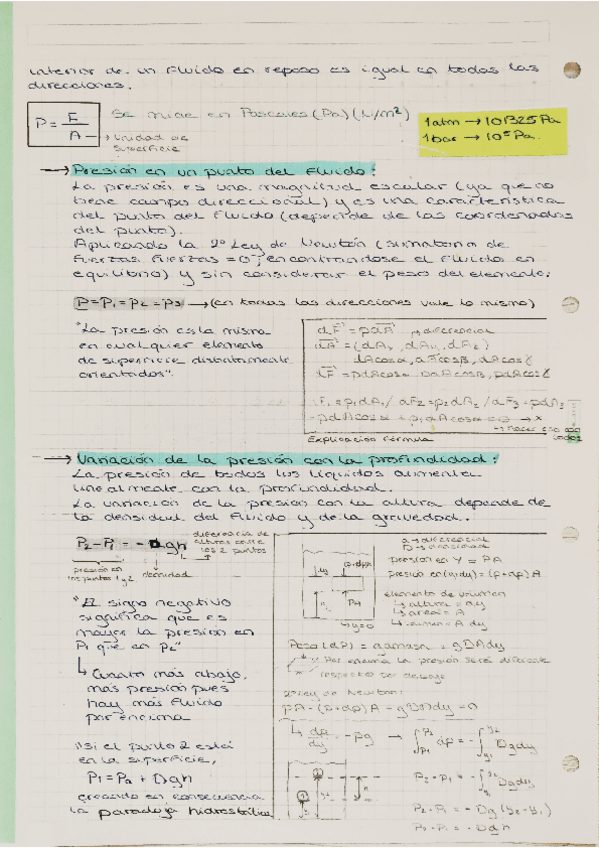 interior de un fluido en reposo es igual en todas las
direcciones.
P = F / A → Unidad de superficie
Se mide en Pascales (Pa) (N/m²)
1 atm → 101325 Pa
1 bar → 10⁵ Pa.
→ Presión en un punto del fluido:
La presión es una magnitud escalar (ya que no
tiene campo direccional) y es una característica
del punto del fluido (depende de las coordenadas
del punto).
Aplicando la 2º Ley de Newton (sumatoria de
fuerzas fuerzas = 0, encontrándose el fluido en
equilibrio) y sin considerar el peso del elemento:
P = P₁ = P₂ = P₃ → (en todas las direcciones vale lo mismo)
"La presión es la misma
en cualquier elemento
de superficie distintamente
orientados".
dF = p dA → diferencial
dA = (dA₁, dA₂)
dA cos α, dA cos β, dA cos
dF = p dA cos α
F₁ = p₁ dA₁ / dF₂ = p₂ dA₂ / dF₃ = p dA₃
Explicación fórmula
→ Variación de la presión con la profundidad:
La presión de todos los líquidos aumenta
linealmente con la profundidad.
La variación de la presión con la altura depende de
la densidad del fluido y de la gravedad.
P₂ - P₁ = - Dgh
diferencia de
alturas entre
los 2 puntos
presión en
los puntos 1 y 2
densidad
"El signo negativo
significa que es
mayor la presión en
P₁ que en P₂"
↳ Cuanto más abajo,
más presión pues
hay más fluido
por encima
"Si el punto 2 está
en la superficie,
P₁ = Pa + Dgh
creando en consecuencia
la paradoja hidrostática
d → diferencial
D → densidad
presión en Y = PA
presión en (y, dy) = (p + dp) A
elemento de volumen
↳ altura = dy
↳ área = A
↳ volumen = A dy
y = 0
Peso (dP) = gDA dy
Por encima la presión será diferente
respecto por debajo
2ª Ley de Newton:
pA - (p + dp) A - gDA dy = 0
↳ dp/dy = - pg → ∫ dp = - ∫ Dg dy
P₂ - P₁ = - ∫ Dg dy
P₂ - P₁ = - Dg (y₂ - y₁)
P₂ - P₁ = - Dgh